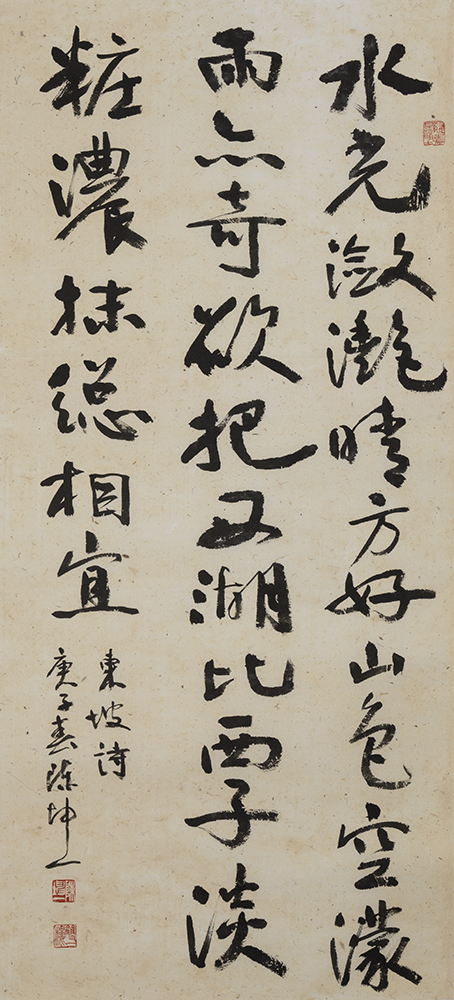 水光潋滟晴方好山色空濛
雨亦奇欲把西湖比西子淡
粧濃抹總相宜
東坡詩
庚子春陳坤一